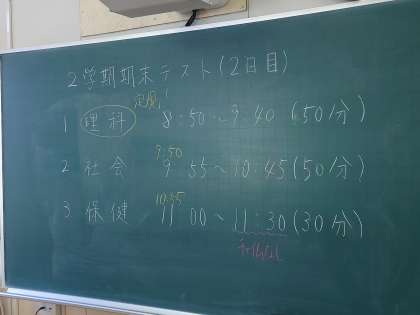 2学期期末テスト(2日目)
定規!
1 理科 8:50～9:40 (50分)
9:50
2 社会 9:55～10:45(50分)
10:55
3 保健 11:00～11:30(30分)